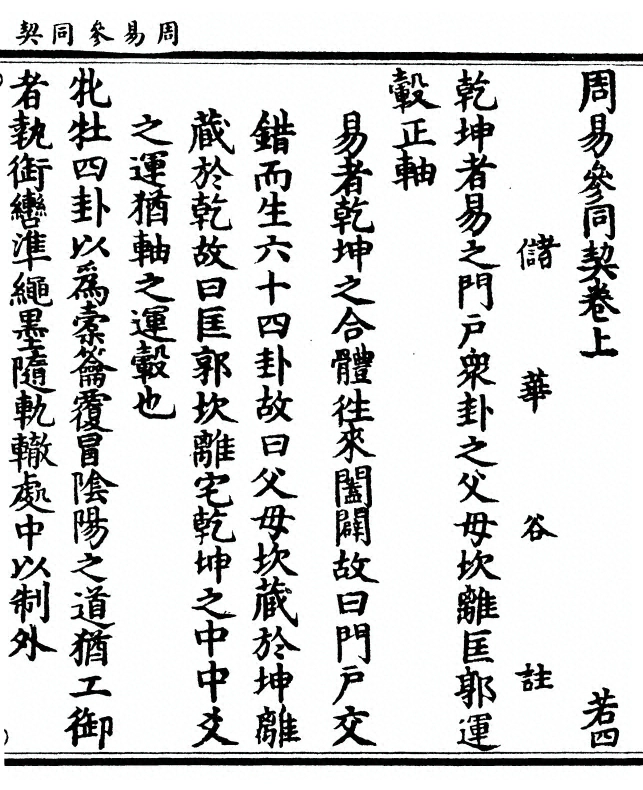 周易參同契
周易參同契卷上 若四
儲華谷註
乾坤者易之門戶衆卦之父母坎離匡郭運
轂正軸
易者乾坤之合體徃來闔闢故曰門戶交
錯而生六十四卦故曰父母坎藏於坤離
藏於乾故曰匡郭坎離宅乾坤之中中爻
之運猶軸之運轂也
牝牡四卦以爲橐籥覆冒陰陽之道猶工御
者執銜轡準繩墨隨軌轍處中以制外